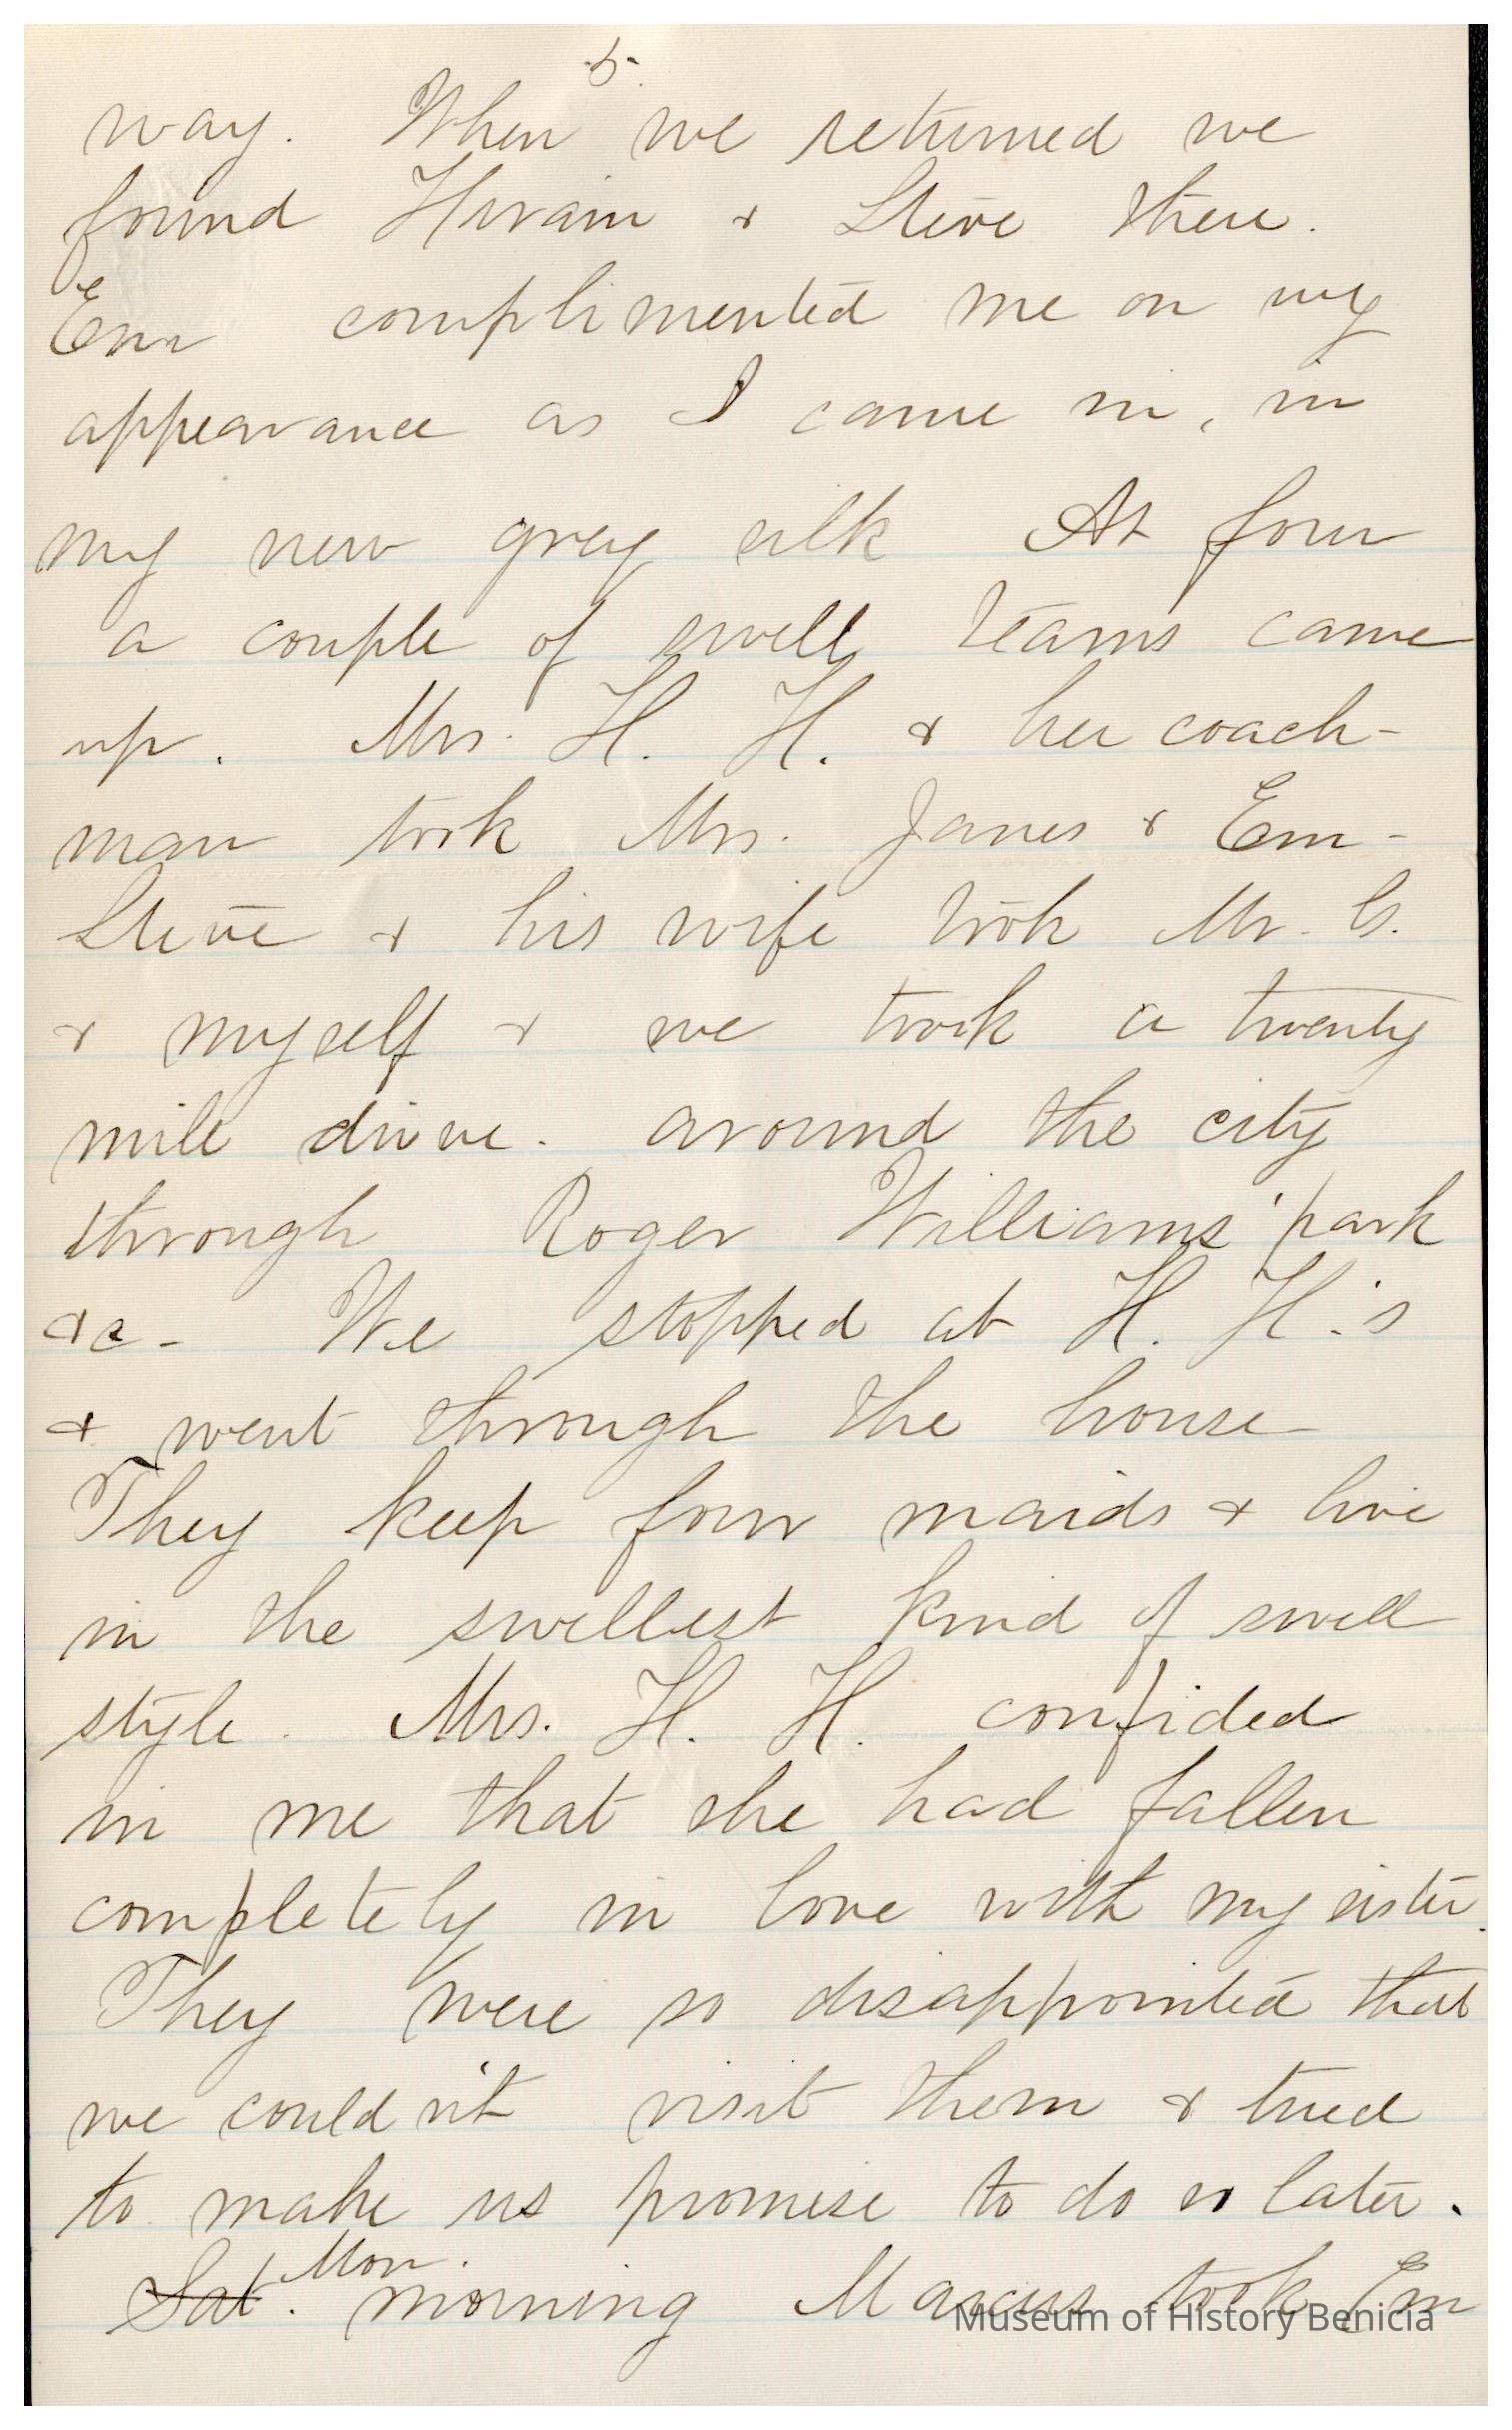 -5-
way. When we returned we
found Hiram & Steve there.
Em complimented me on my
appearance as I came in, in
my new grey silk At four
a couple of swell teams came
up. Mrs. H. H. & her coach-
man took Mrs. Janes & Em-
Steve & his wife took Mr. G.
& myself & we took a twenty
mile drive. around the city
through Roger Williams' park
&c - We stopped at H. H.'s
& went through the house
They keep four maids & live
in the swellest kind of swell
style. Mrs. H. H. confided
in me that she had fallen
completely in love with my sister.
They were so disappointed that
we couldn't visit them & tried
to make us promise to do so later.
Mon.
Sat. morning Marcus took Em
Museum of History Benicia